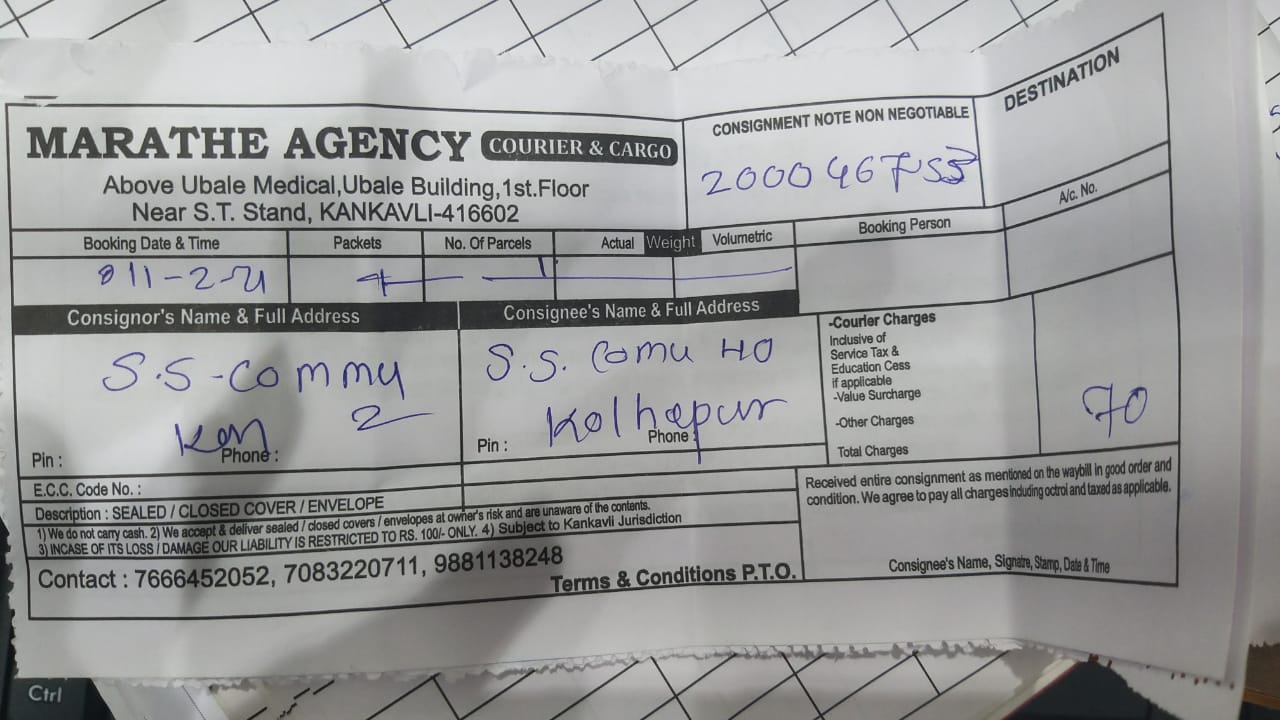 MARATHE AGENCY COURIER & CARGO
Above Ubale Medical,Ubale Building,1st.Floor
Near S.T. Stand, KANKAVLI-416602
CONSIGNMENT NOTE NON NEGOTIABLE
DESTINATION
Booking Date & Time
Packets
No. Of Parcels
Actual Weight Volumetric
Booking Person
A/c. No.
11-2-21
Consignor's Name & Full Address
S.S-Commu
Kan 2
Pin :
Phone :
Consignee's Name & Full Address
S.S. Comu HO
Kolhapur
Pin :
Phone :
-Courier Charges
Inclusive of
Service Tax &
Education Cess
if applicable
-Value Surcharge
-Other Charges
Total Charges
70
E.C.C. Code No. :
Description : SEALED / CLOSED COVER / ENVELOPE
1) We do not carry cash. 2) We accept & deliver sealed / closed covers / envelopes at owner's risk and are unaware of the contents.
3) INCASE OF ITS LOSS / DAMAGE OUR LIABILITY IS RESTRICTED TO RS. 100/- ONLY. 4) Subject to Kankavli Jurisdiction
Contact : 7666452052, 7083220711, 9881138248
Terms & Conditions P.T.O.
Received entire consignment as mentioned on the waybill in good order and
condition. We agree to pay all charges including octroi and taxed as applicable.
Consignee's Name, Signatre, Stamp, Date & Time
Ctrl